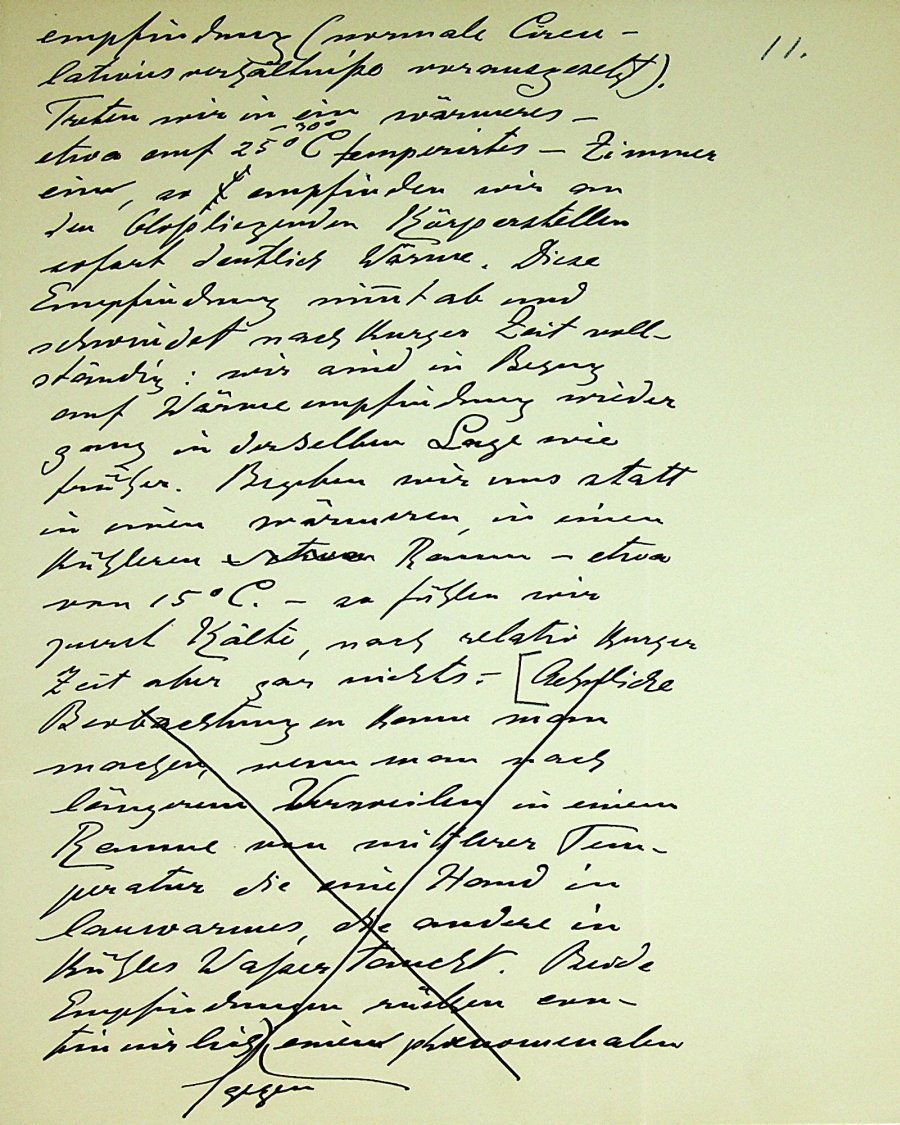 11.
empfindung (normale Circu-
lationsverhältniße vorausgesetzt).
Treten wir in ein wärmeres –
etwa auf 25°-30° C temperirtes – Zimmer
ein, so empfinden wir an
den bloßliegenden Körperstellen
sofort deutlich Wärme. Diese
Empfindung nim̄t ab und
schwindet nach kurzer Zeit voll-
ständig: wir sind in Bezug
auf Wärmeempfindung wieder
ganz in derselben Lage wie
früher. Begeben wir uns statt
in einen wärmeren, in einen
kühleren Raum – etwa
von 15° C. – so fühlen wir
zuerst Kälte, nach relativ kurzer
Zeit aber gar nichts. – [Aehnliche
Beobachtungen kann man
machen, wenn man nach
längerem Verweilen in einem
Raume von mittlerer Tem-
peratur die eine Hand in
lauwarmes, die andere in
kühles Waßer taucht. Beide
Empfindungen rücken con-
tinuirlich gegen einen phænomenalen